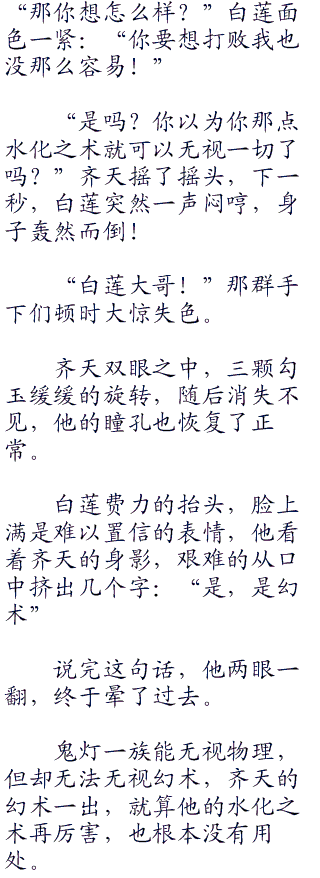 “那你想怎么样？”白莲面
色一紧：“你要想打败我也
没那么容易！”
“是吗？你以为你那点
水化之术就可以无视一切了
吗？”齐天摇了摇头，下一
秒，白莲突然一声闷哼，身
子轰然而倒！
“白莲大哥！”那群手
下们顿时大惊失色。
齐天双眼之中，三颗勾
玉缓缓的旋转，随后消失不
见，他的瞳孔也恢复了正
常。
白莲费力的抬头，脸上
满是难以置信的表情，他看
着齐天的身影，艰难的从口
中挤出几个字：“是，是幻
术”
说完这句话，他两眼一
翻，终于晕了过去。
鬼灯一族能无视物理，
但却无法无视幻术，齐天的
幻术一出，就算他的水化之
术再厉害，也根本没有用
处。